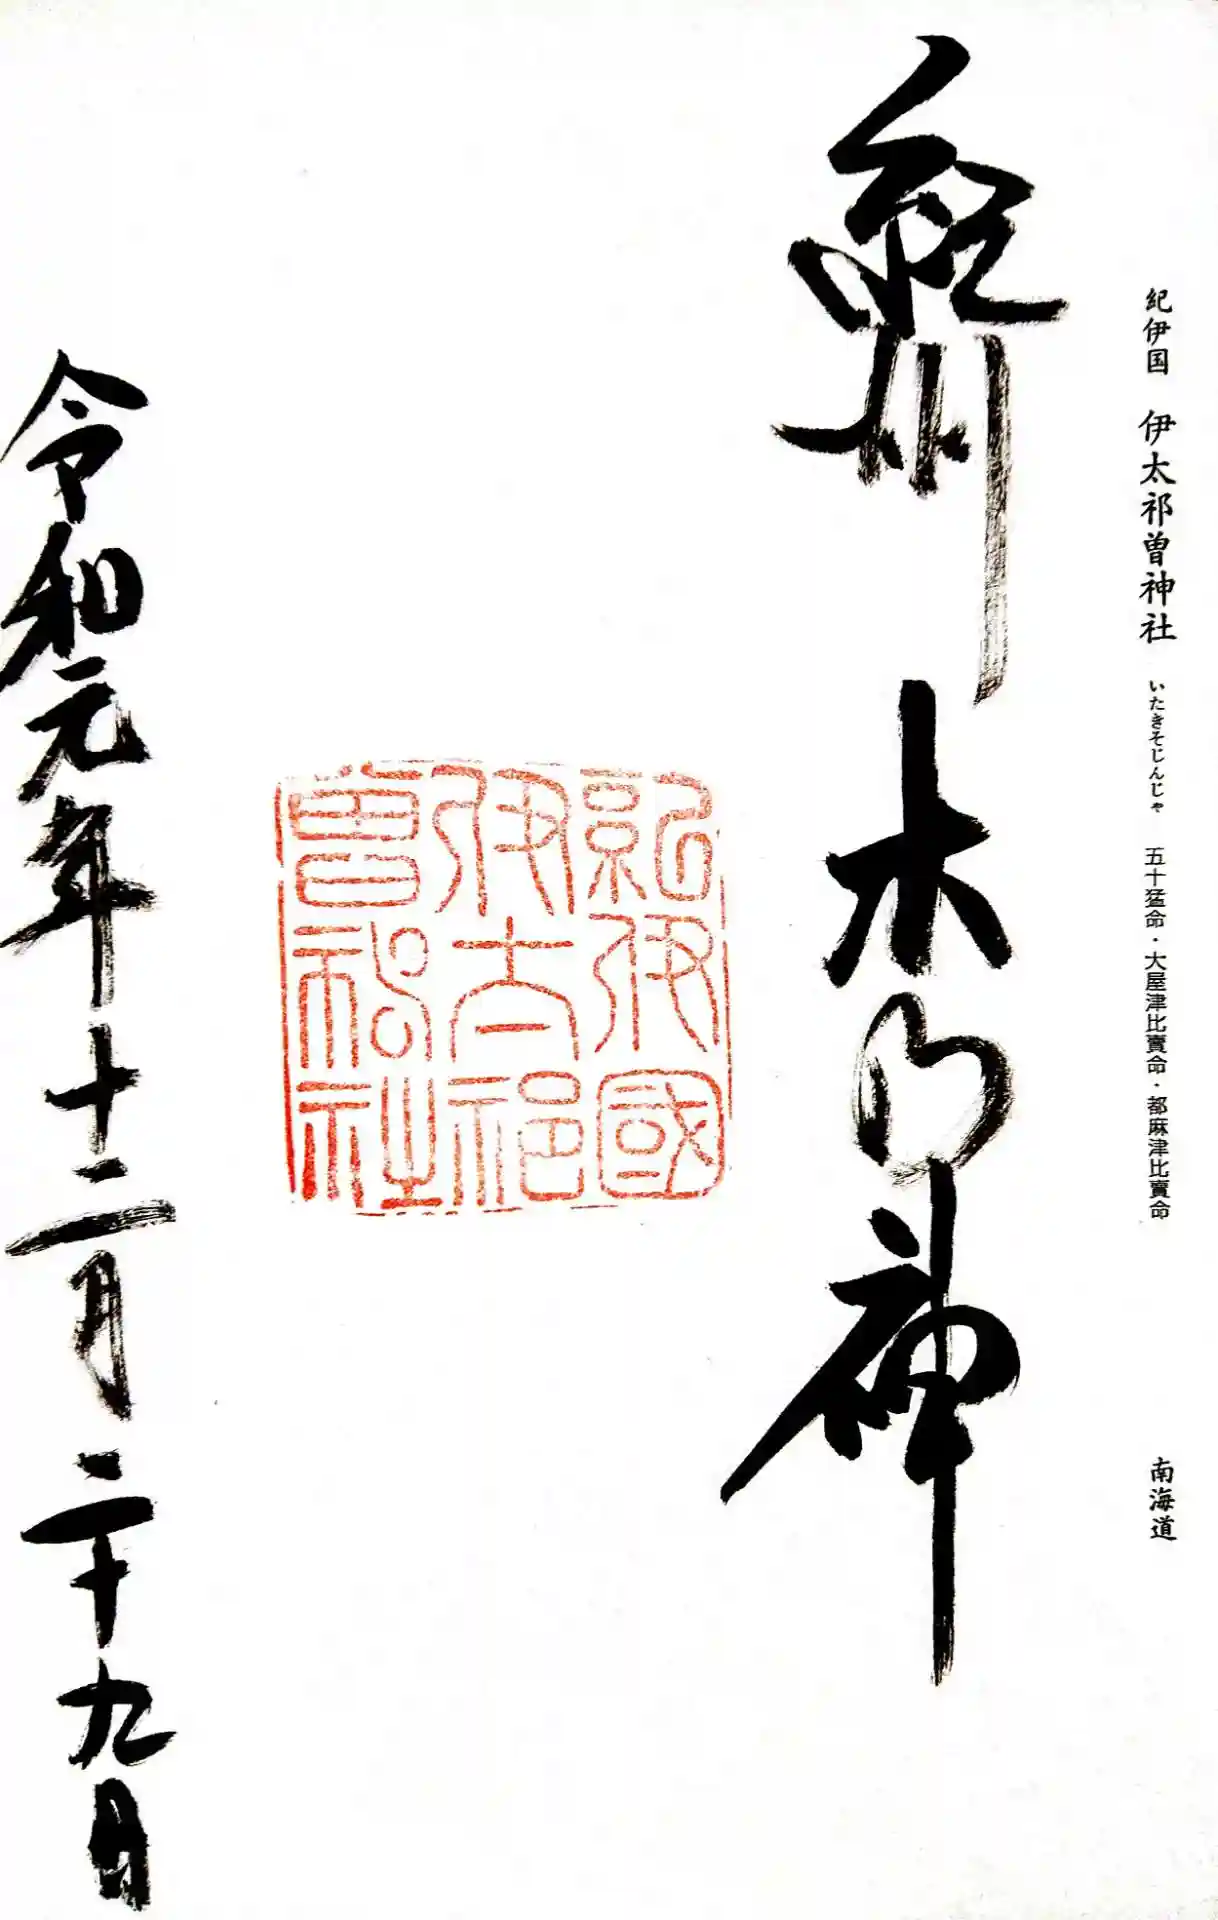 紀伊国 伊太祁曽神社 いたきそじんじゃ 五十猛命・大屋津比賣命・都麻津比賣命 南海道
紀州 木の神
紀伊國
伊太祁
曽神社
令和元年十二月二十九日